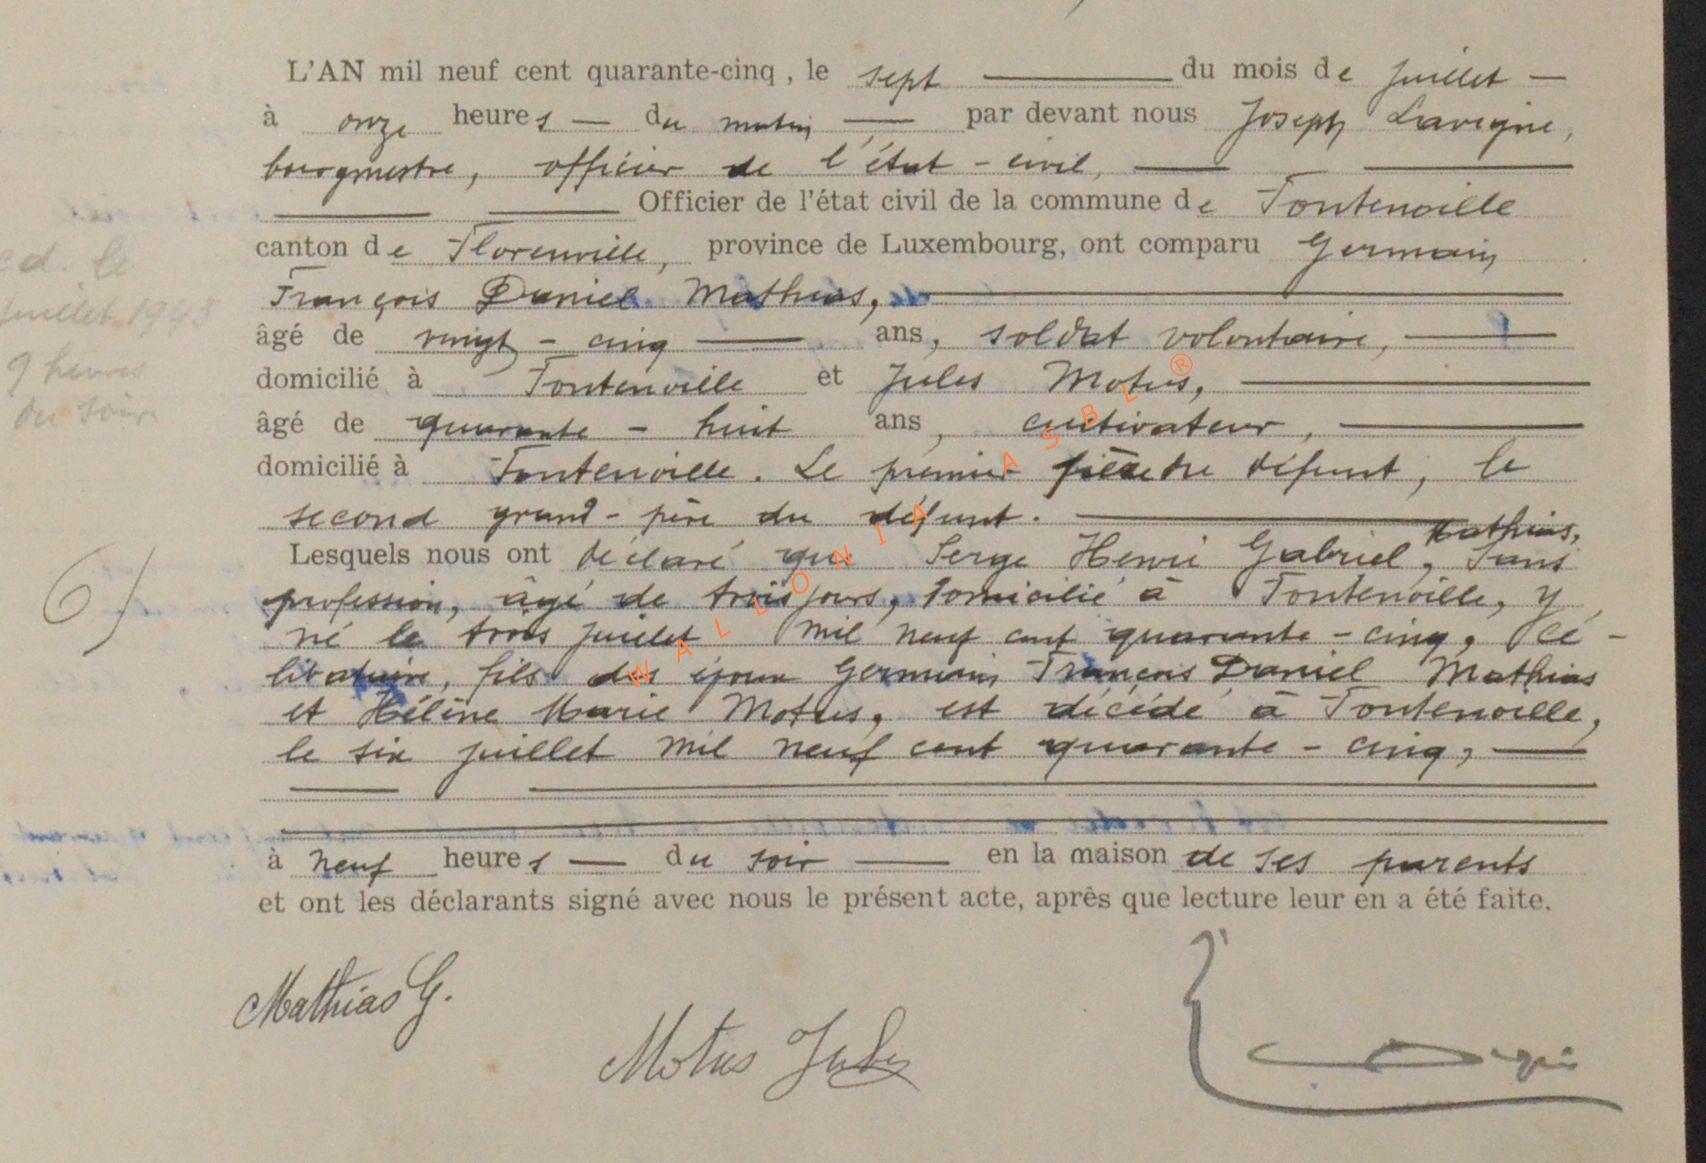 L'AN mil neuf cent quarante-cinq, le sept du mois de juillet
à onze heures du matin par devant nous Joseph Lavigne,
bourgmestre, officier de l'état-civil,
Officier de l'état civil de la commune de Fontenoille
canton de Florenville, province de Luxembourg, ont comparu Germain
François Daniel Mathias,
âgé de vingt-cinq ans, soldat volontaire,
domicilié à Fontenoille et Jules Motus,
âgé de quarante-huit ans, cultivateur,
domicilié à Fontenoille. Le premier père du défunt, le
second grand-père du défunt.
Mathias,
Lesquels nous ont déclaré que Serge Henri Gabriel, sans
profession, âgé de trois jours, domicilié à Fontenoille, y
né le trois juillet mil neuf cent quarante-cinq, cé-
libataire, fils des époux Germain François Daniel Mathias
et Hélène Marie Motus, est décédé à Fontenoille,
le six juillet mil neuf cent quarante-cinq,
à neuf heures du soir en la maison de ses parents
et ont les déclarants signé avec nous le présent acte, après que lecture leur en a été faite.
Mathias G.
Motus Jules
éd. le
juillet 1945
9 heures
du soir
6)
WALLONIA ASBL ®